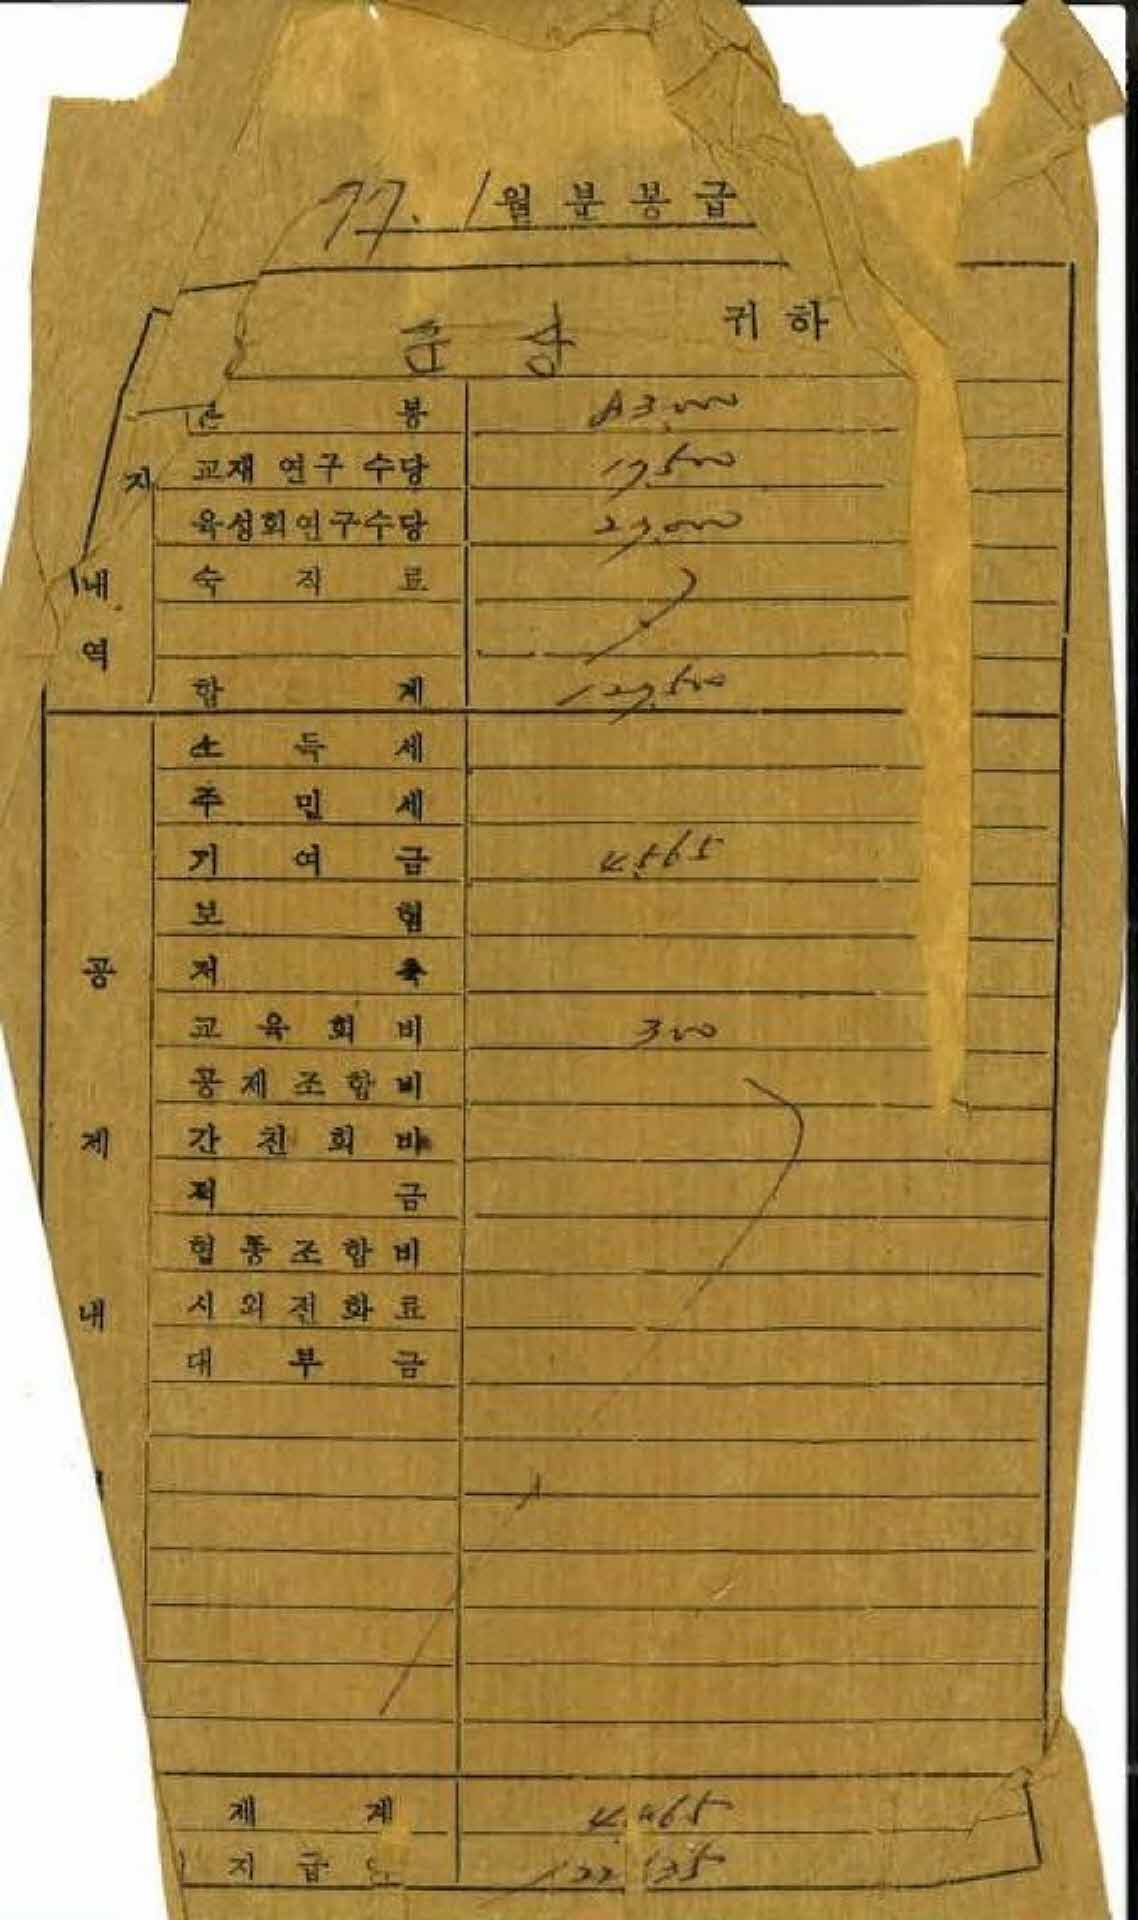 77. 1월분봉급
귀하
본 봉 83,000
지 교재 연구 수당 17,500
육성회연구수당 27,000
내 숙 직 료
역
합 계 127,500
소 득 세
주 민 세
기 여 금 4,565
보 험
공 저 축
교 육 회 비 300
공 제 조 합 비
제 간 친 회 비
적 금
협 동 조 합 비
내 시 외 전 화 료
대 부 금
제 계
지 급